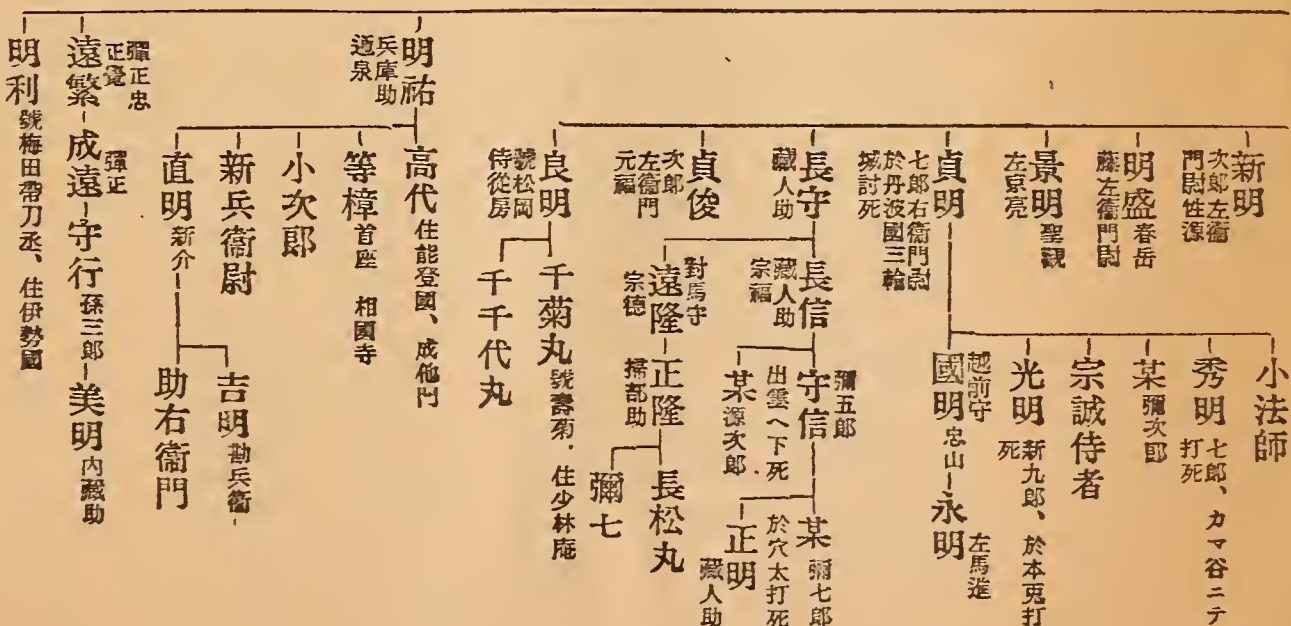 新明 次郎左衞
門尉性源
明盛 春岳
藤左衞門尉
景明 聖觀
左京亮
貞明
七郎右衞門尉
於丹波國三輪
城討死
小法師
秀明 七郎、カマ谷ニテ
打死
某 彌次郎
宗誠侍者
光明 新九郎、於本
打
死
國明 越前守
忠山
永明 左馬進
長守
藏人助
長信
藏人助
宗福
守信 彌五郎
出雲へ下死
某 彌七郎
於穴太打死
正明
藏人助
某 源次郎
遠隆 對馬守
宗德
正隆
掃部助
長松丸
彌七
貞俊
次郎
左衞門
元福
良明
號松岡
侍從房
千菊丸 號壽菊、住少林庵
千千代丸
明祐
兵庫助
逈泉
高代 住能登國、成他門
等樟 首座 相國寺
小次郎
新兵衞尉
直明 新介
吉明 勘兵衞
助右衞門
遠繁 彈正忠
正覺
成遠 彈正
守行 孫三郎
美明 內藏助
明利 號梅田帶刀丞、住伊勢國